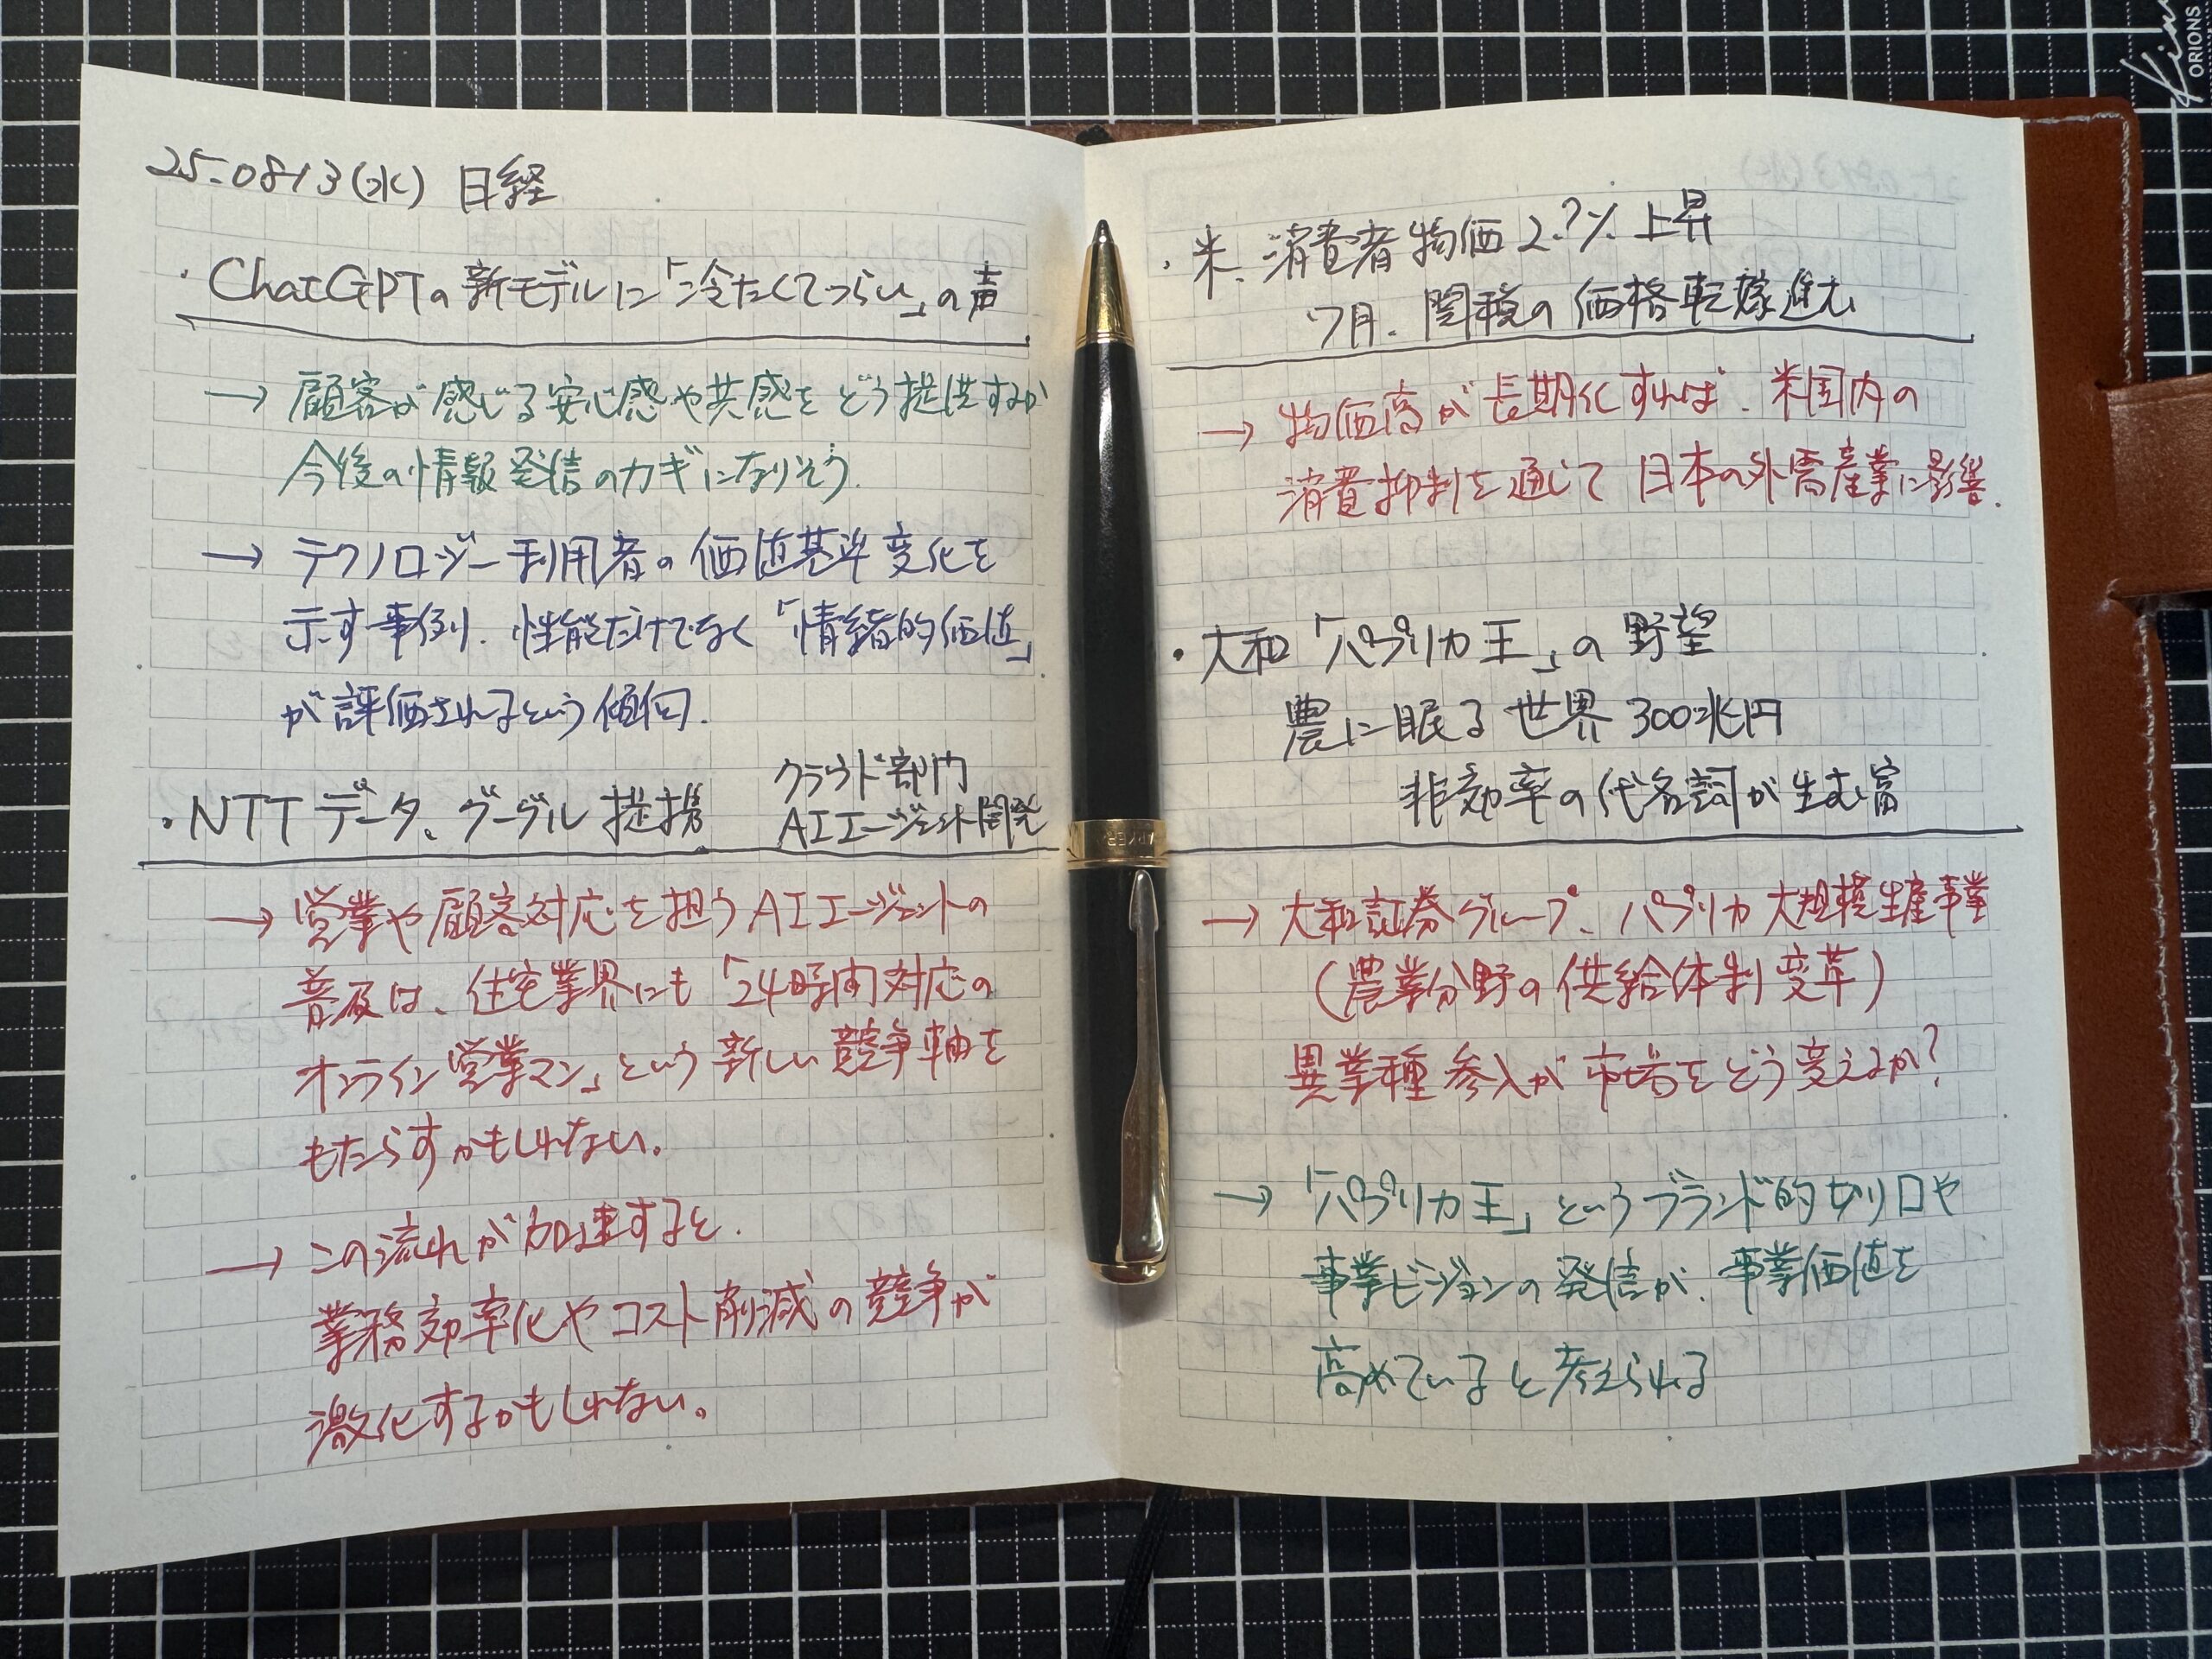 25.0813(水) 日経
・ChatGPTの新モデルに「冷たくてつらい」の声
→ 顧客が感じる安心感や共感をどう提供するか
今後の情報発信のカギになりそう.
→ テクノロジー利用者の価値基準変化を
示す事例. 性能だけでなく「情緒的価値」
が評価されるという傾向.
・NTTデータ、グーグル提携
クラウド部門
AIエージェント開発
→ 営業や顧客対応を担うAIエージェントの
普及は、住宅業界にも「24時間対応の
オンライン営業マン」という新しい競争軸を
もたらすかもしれない。
→ この流れが加速すると.
業務効率化やコスト削減の競争が
激化するかもしれない。
・米、消費者物価2.7%上昇
7月. 関税の価格転嫁進む
→ 物価高が長期化すれば. 米国内の
消費抑制を通じて日本の外需産業に影響.
・大和「パプリカ王」の野望
農に眠る世界300兆円
非効率の代名詞が生む富
→ 大和証券グループ、パプリカ大規模生産事業
(農業分野の供給体制変革)
異業種参入が市場をどう変えるか?
→ 「パプリカ王」というブランド的切り口や
事業ビジョンの発信が、事業価値を
高めていると考えられる
ORIONS